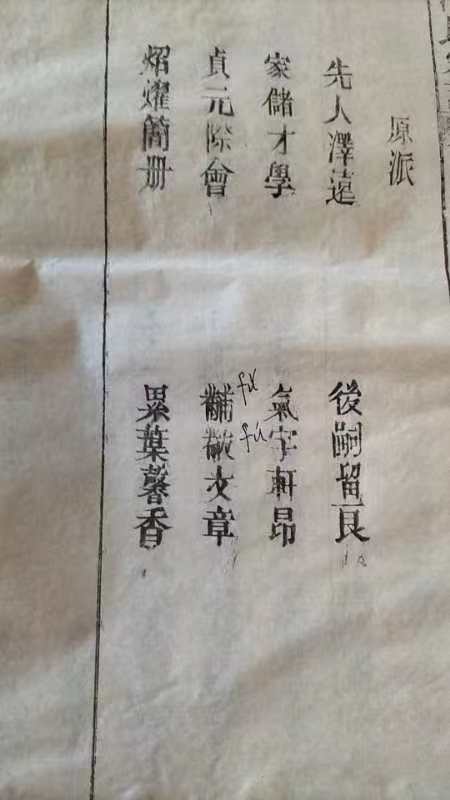 原派
先人澤遠 後嗣留良
家儲才學 氣宇軒昂
貞元際會 黼黻文章
fǔ
fú
熠燿簡册 累葉馨香